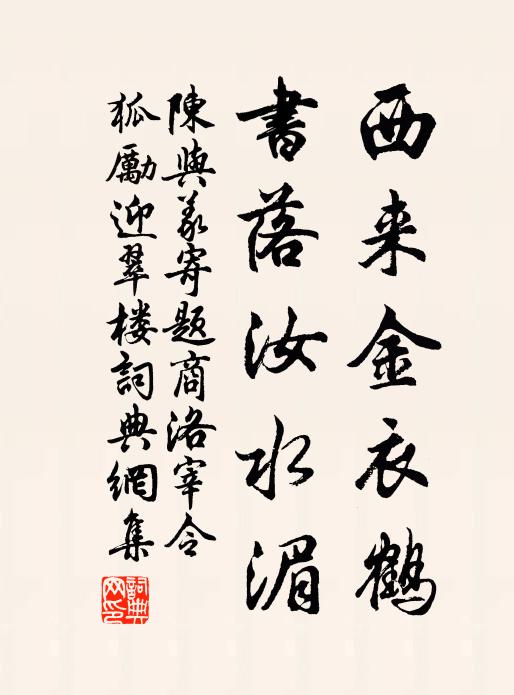 西来金衣鹤
書落汝水湄
陳與義寄題商洛宰令
狐勵迎翠楼詞典網集
詞典网印